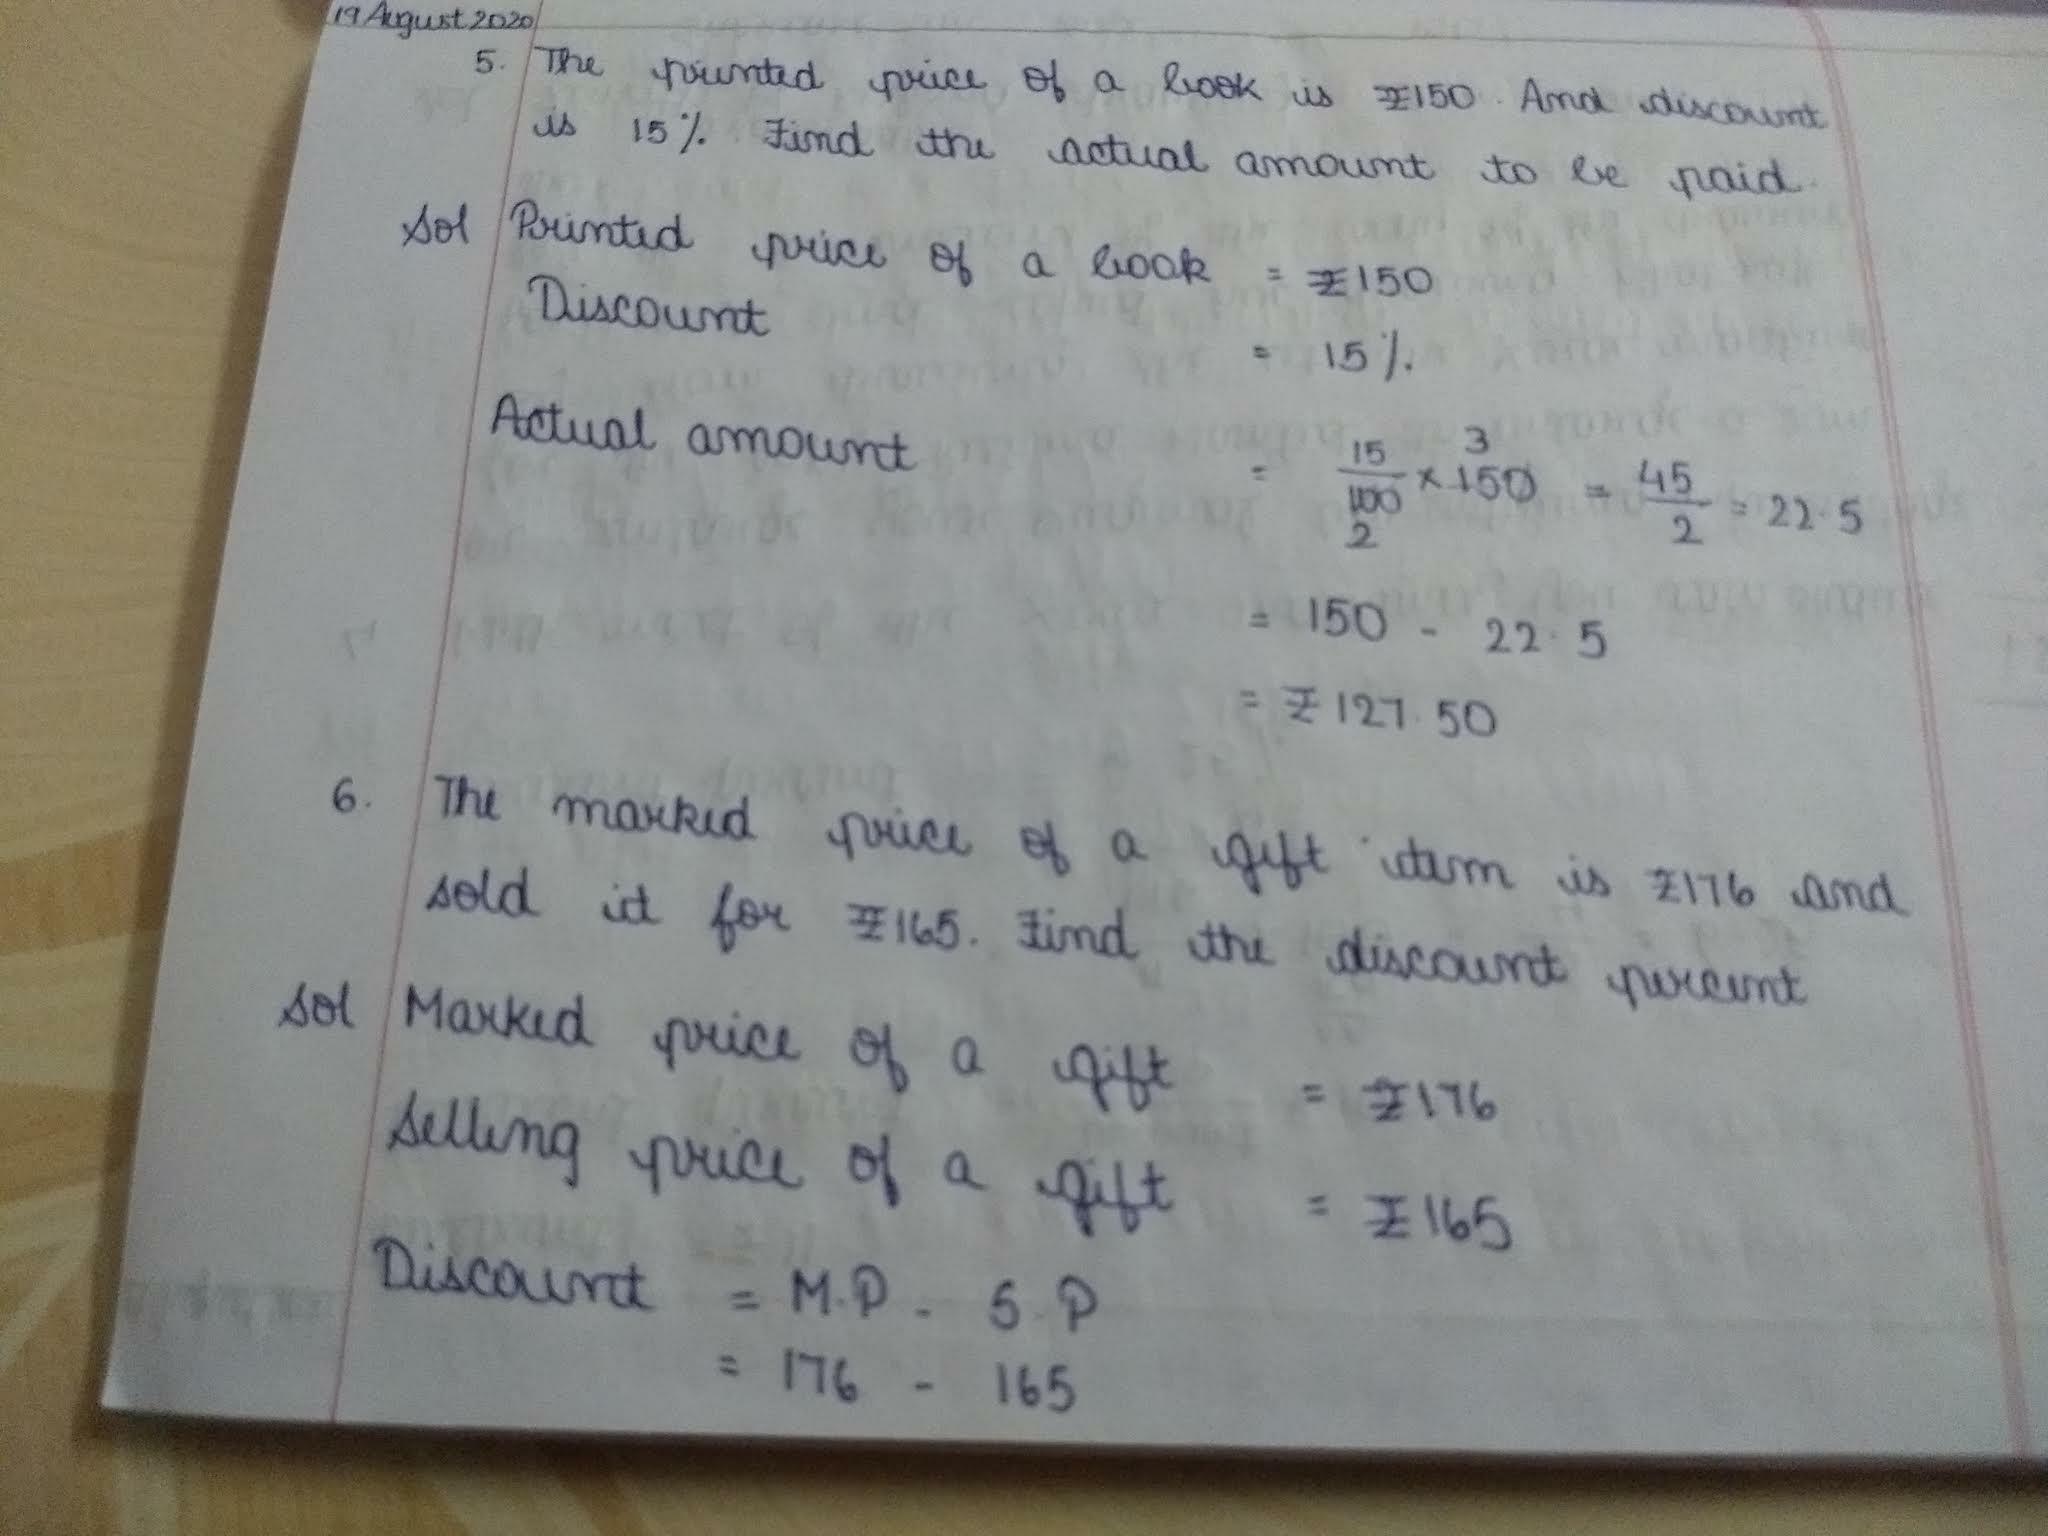 19 August 2020
5. The printed price of a book is ₹150. And discount
is 15%. Find the actual amount to be paid.
Sol Printed price of a book = ₹150
Discount = 15%.
Actual amount = 15/100 × 150 = 45/2 = 22.5
3
2
= 150 - 22.5
= ₹127.50
6. The marked price of a gift item is ₹176 and
sold it for ₹165. Find the discount percent
Sol Marked price of a gift = ₹176
Selling price of a gift = ₹165
Discount = M.P - S.P
= 176 - 165